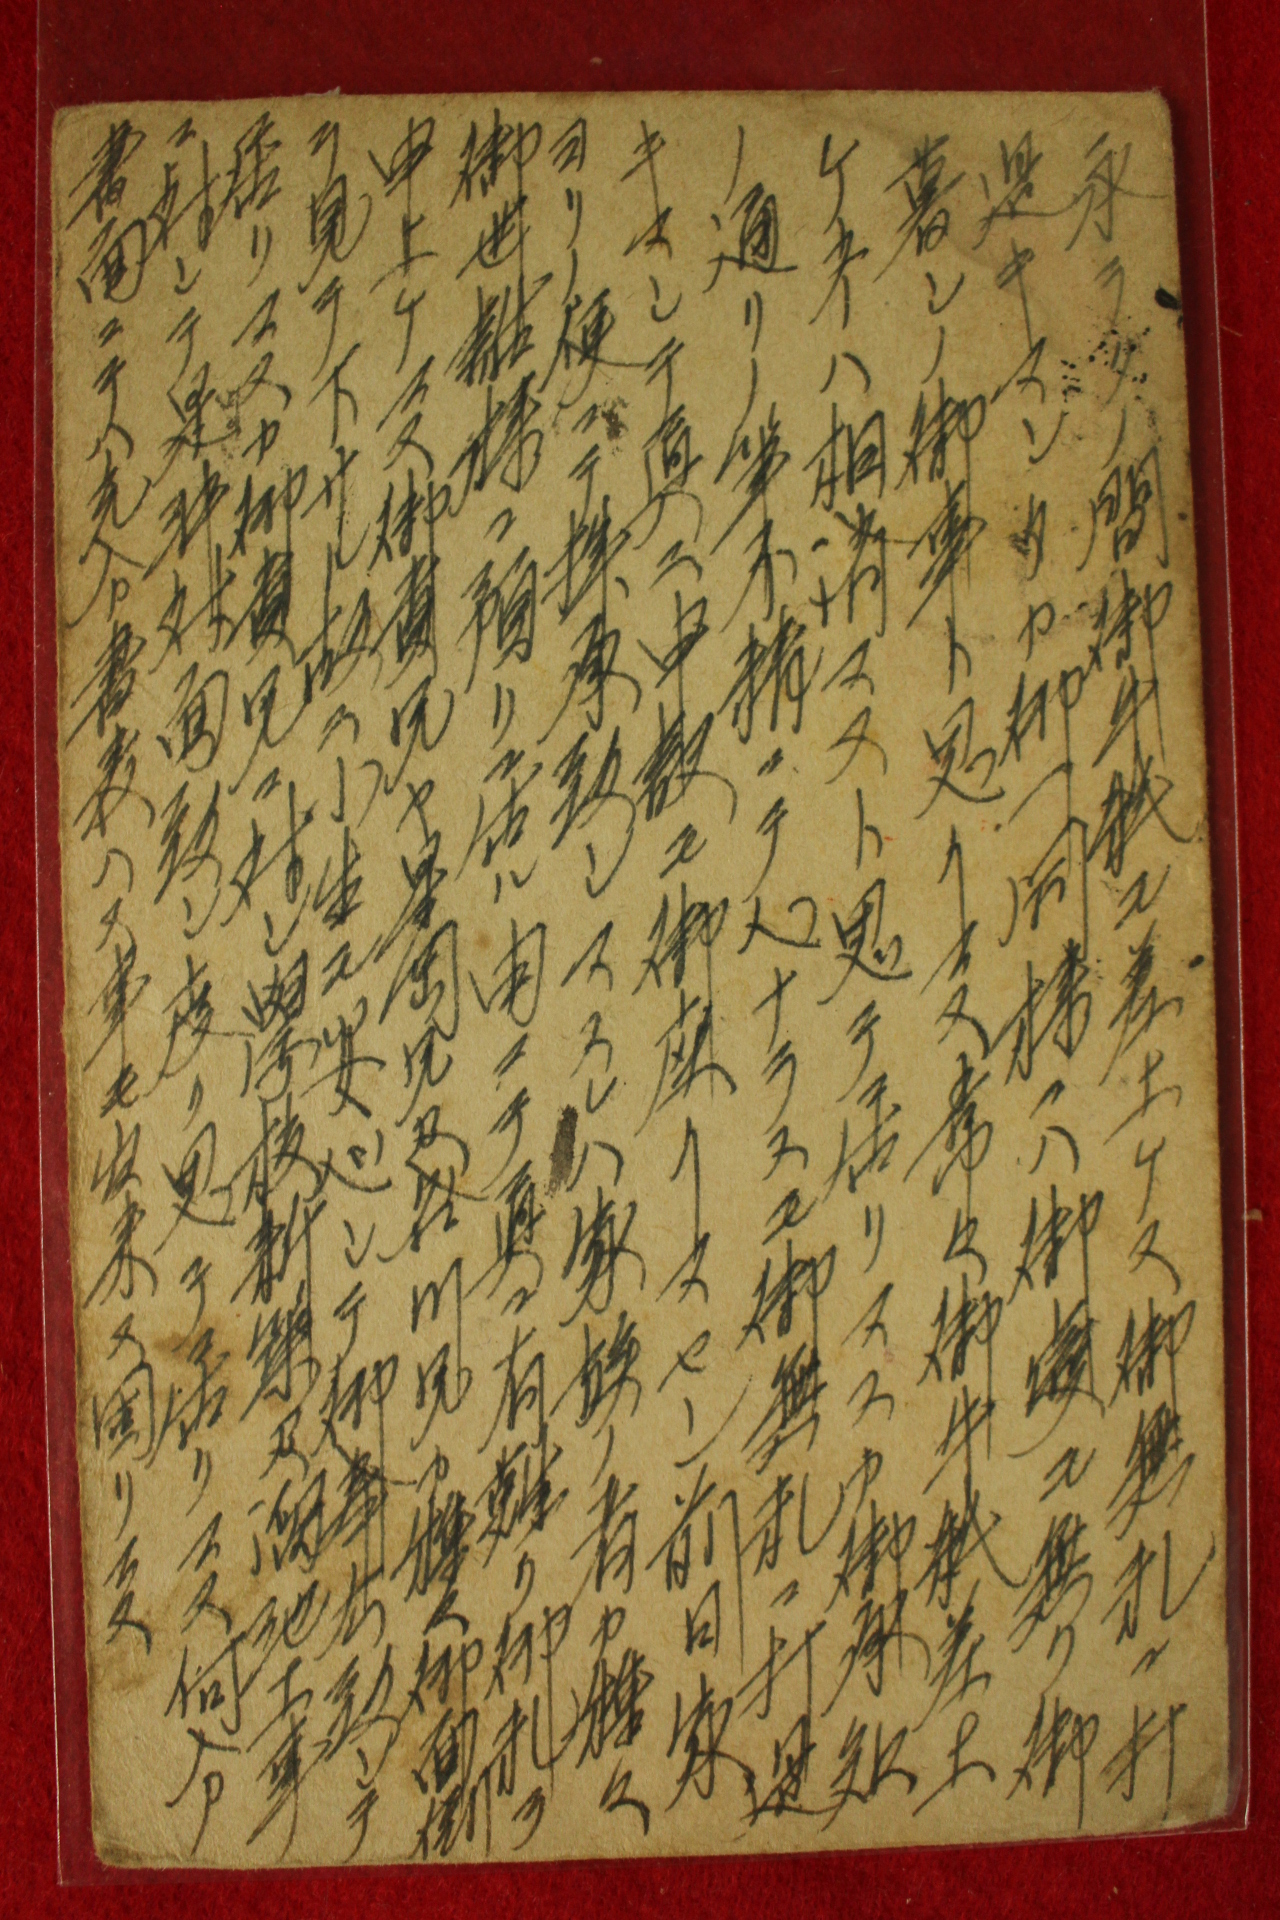 永ラクノ間御手紙モ差上ケス御無礼ニ打
過キマシタカ御一同様ニハ御変モ無ク御
暮シノ御事ト思ヒマス常々御手紙差上
ケネハ相済マヌト思テ居リマスカ御承知
ノ通リノ筆不精ニテ心ナラスモ御無礼ニ打過
キマシテ真ニ申訳モ御座リマセン前日家
ヨリノ便ニテ拝承致シマスレハ家族ノ者カ種々
御世話様ニ預リ居ル由ニテ真ニ有難ク御礼ヲ
申上ケマス御貴兄ヤ 兄及 川兄カ種々御面倒
ヲ見テ下サル故ニ小生モ安心シテ御奉公致シテ
居リマス又御貴兄ニ対シ 及 地工事
ニ対シテ是非対面致シ度ク思テ居リマス何分
書面ニテハ充分書表ハス事モ出来ス困リマス